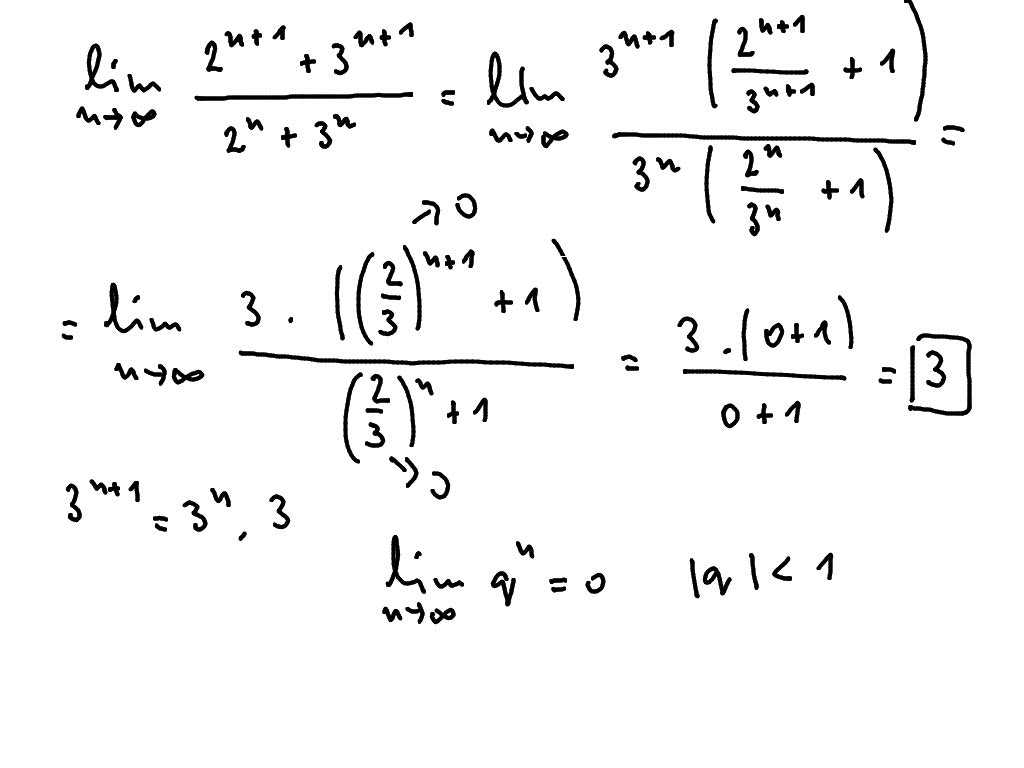 lim n→∞ (2^(n+1) + 3^(n+1)) / (2^n + 3^n) = lim n→∞ (3^(n+1) (2^(n+1)/3^(n+1) + 1)) / (3^n (2^n/3^n + 1)) =
→ 0
= lim n→∞ (3 · ((2/3)^(n+1) + 1)) / ((2/3)^n + 1) = (3 · (0+1)) / (0+1) = 3
→ 0
3^(n+1) = 3^n · 3
lim n→∞ q^n = 0 |q| < 1